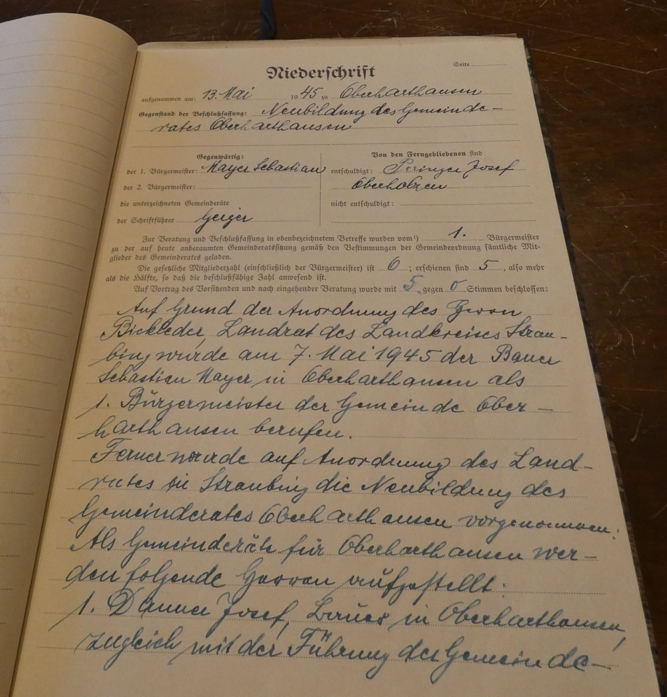 Seite
Niederschrift
aufgenommen am: 13. Mai 1945 in Oberharthausen
Gegenstand der Beschlußfassung: Neubildung des Gemeinde-
rates Oberharthausen
Gegenwärtig:
der 1. Bürgermeister: Mayer Sebastian
der 2. Bürgermeister:
die unterzeichneten Gemeinderäte
der Schriftführer Geiger
Von den Ferngebliebenen sind
entschuldigt: Josef
Oberholzen
nicht entschuldigt:
Zur Beratung und Beschlußfassung in obenbezeichnetem Betreffe wurden vom¹) 1. Bürgermeister
zu der auf heute anberaumten Gemeinderatssitzung gemäß den Bestimmungen der Gemeindeordnung sämtliche Mit-
glieder des Gemeinderates geladen.
Die gesetzliche Mitgliederzahl (einschließlich der Bürgermeister) ist 6; erschienen sind 5, also mehr
als die Hälfte, so daß die beschlußfähige Zahl anwesend ist.
Auf Vortrag des Vorsitzenden und nach eingehender Beratung wurde mit 5 gegen 0 Stimmen beschlossen:
Auf Grund der Anordnung des Herrn
Landrat des Landkreises Strau-
bing wurde am 7. Mai 1945 der Bauer
Sebastian Mayer in Oberharthausen als
1. Bürgermeister der Gemeinde Ober-
harthausen berufen.
Ferner wurde auf Anordnung des Land-
rates in Straubing die Neubildung des
Gemeinderates Oberharthausen vorgenommen.
Als Gemeinderäte für Oberharthausen wer-
den folgende Herren aufgestellt:
1. Danner Josef, Bauer in Oberharthausen,
zugleich mit der Führung der Gemeinde-